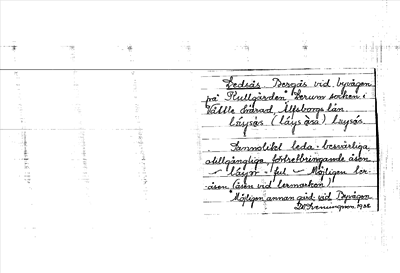 Ledsås Bergås vid byvägen
på "Kullgården" Lerum socken i
Vättle härad Älfsborgs län.
låysås. (låys åsa) låysås.
Sannolikt leda = besvärliga
otillgängliga förtretbringande åsen
låyʒr = ful Möjligen ler-
åsen (åsen vid lermarken)
Möjligen annan gård vid Byvägen